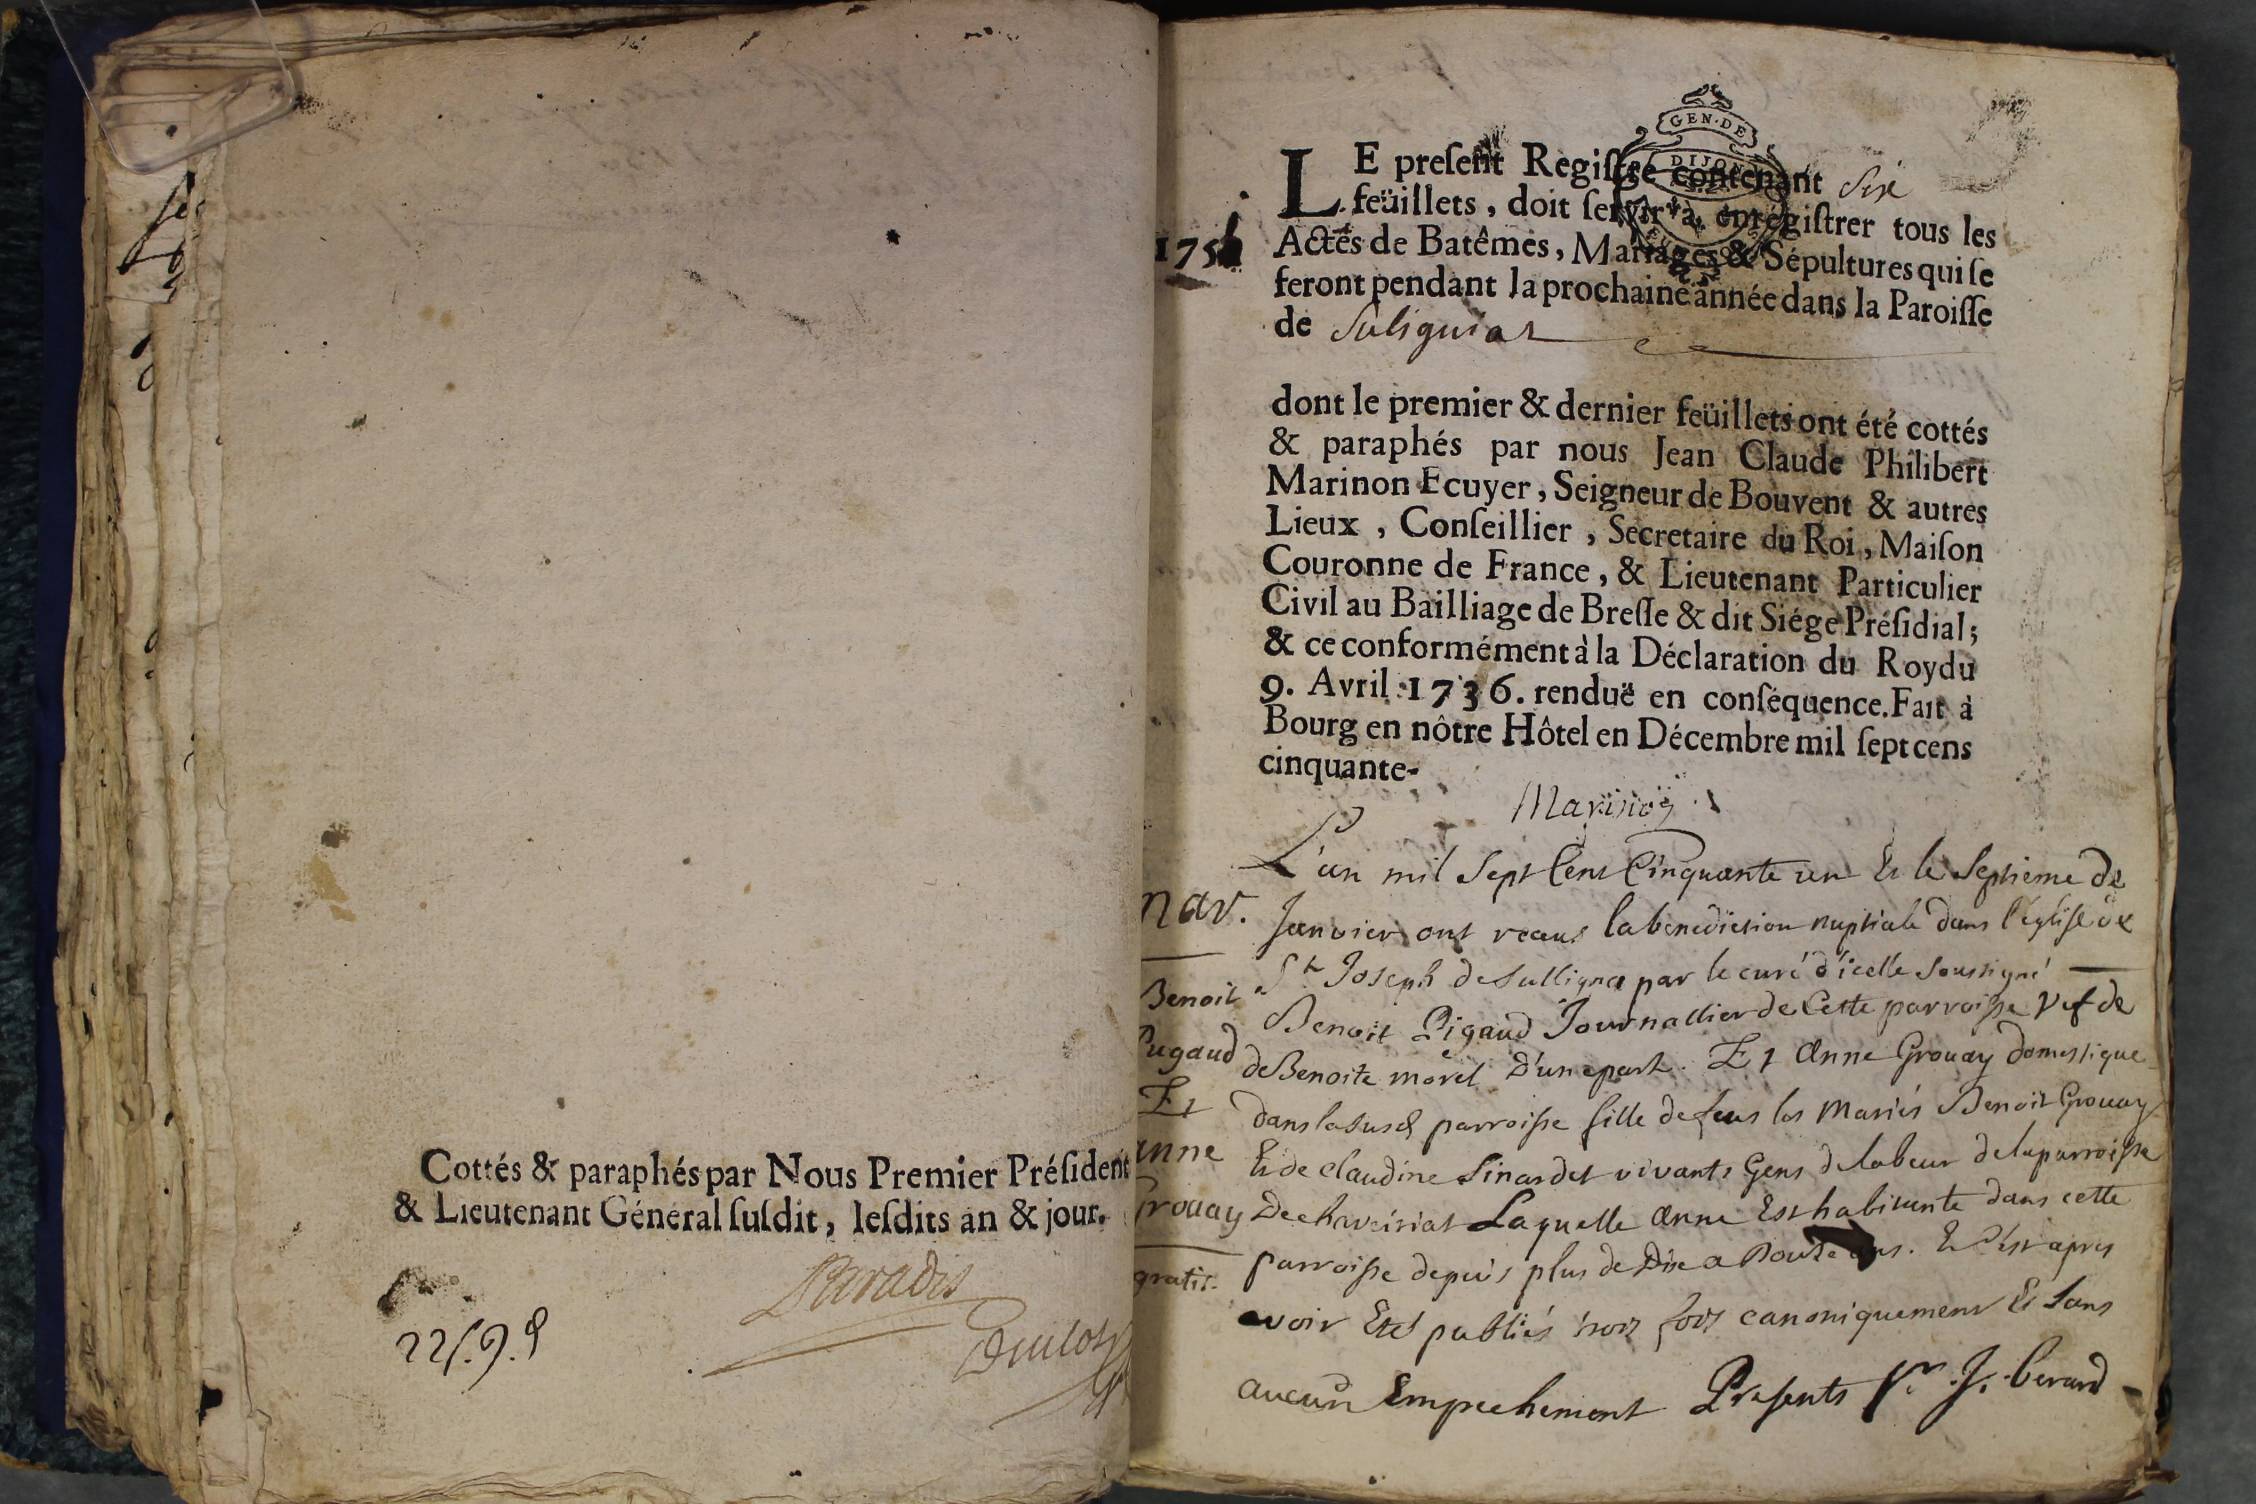 Cottés & paraphés par Nous Premier Préſident
& Lieutenant Général ſuſdit, leſdits an & jour.
Paradis
1751
GEN·DE
DIJON
LE preſent Regiſtre contenant Six
feüillets, doit ſervir à enrégiſtrer tous les
Actes de Batêmes, Mariages & Sépultures qui ſe
feront pendant la prochaine année dans la Paroiſſe
de Suligniat
dont le premier & dernier feüillets ont été cottés
& paraphés par nous Jean Claude Philibert
Marinon Ecuyer, Seigneur de Bouvent & autres
Lieux, Conſeillier, Secretaire du Roi, Maiſon
Couronne de France, & Lieutenant Particulier
Civil au Bailliage de Breſſe & dit Siége Préſidial;
& ce conformément à la Déclaration du Roy du
9. Avril 1736. renduë en conſéquence. Fait à
Bourg en nôtre Hôtel en Décembre mil ſept cens
cinquante-
Marinon
L'an mil Sept Cent Cinquante un Et le Septieme de
Janvier ont reçeus la benediction nuptiale dans l'église de
St Joseph de Sulligna par le curé d'icelle Soussigné
Benoit Pigaud Journallier de Cette parroisse Vef de
de Benoite morel D'une part. Et Anne Grouay domestique
dans la susd parroisse fille de feus les Mariés Benoit Grouay
Et de Claudine Sinardet vivants Gens de labeur de la parroisse
De chaveiriat Laquelle Anne Est habitante dans cette
parroisse depuis plus de Dix a Douze ans. Et C'est apres
avoir Eté publiés trois fois canoniquement Et Sans
aucun Empechement Presents Sr. J. berard
nav.
Benoit
Pugaud
Et
anne
Grouay
gratis.